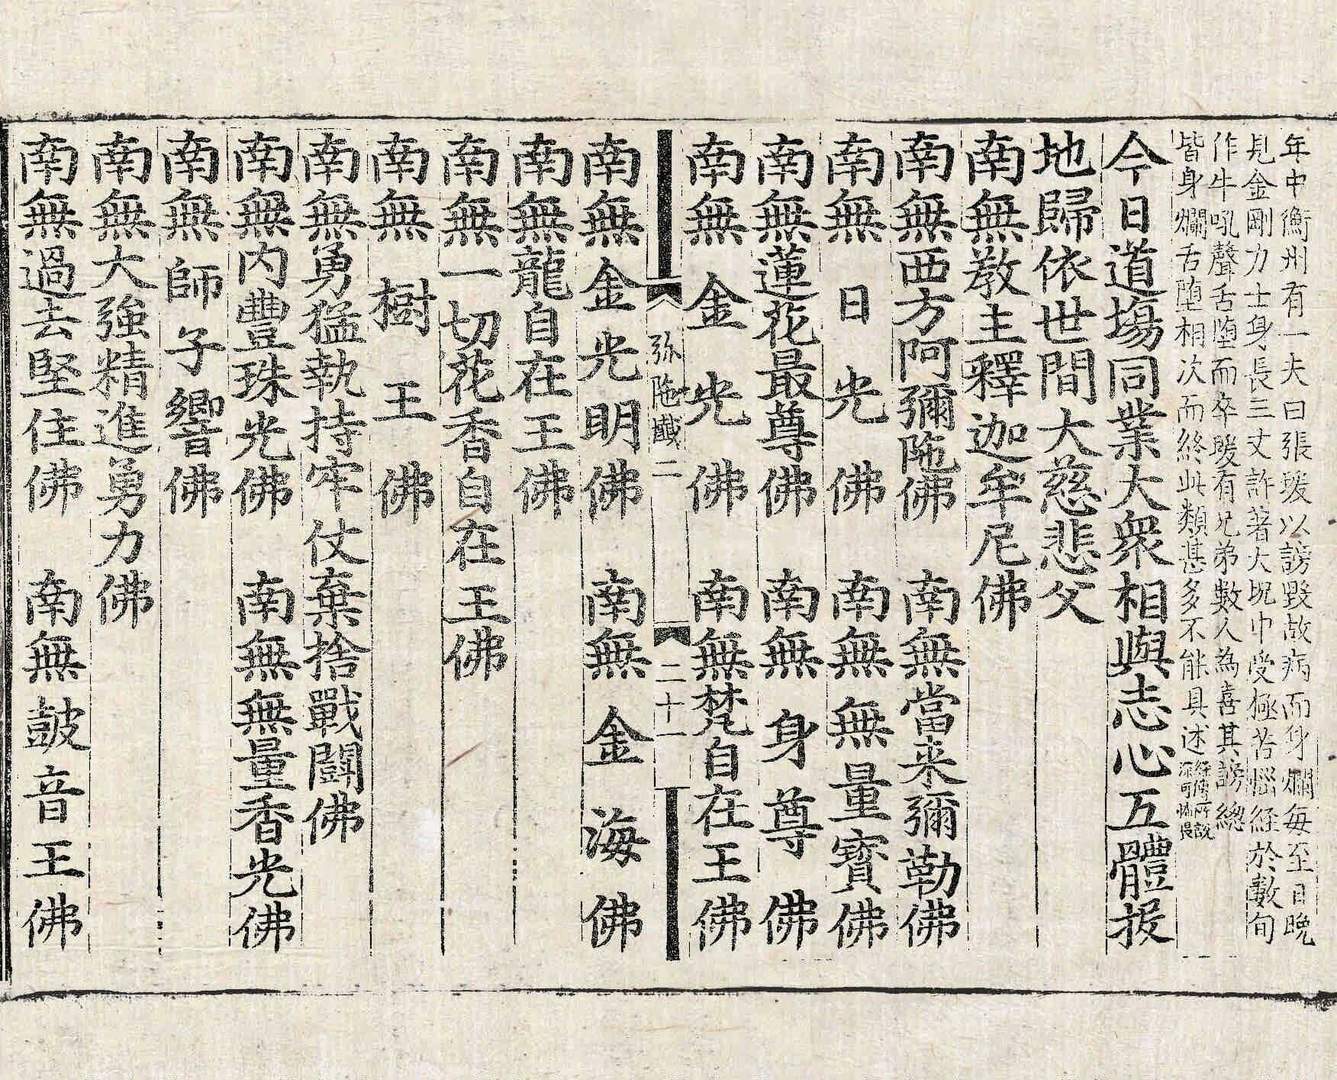 年中衡州有一夫曰張堠以謗毀故病而身爛每至日晩
見金剛力士身長三丈許著大坑中受極苦惱經於數旬
作牛吼聲舌墮而卒堠有兄弟數人為喜其謗總
皆身爛舌墮相次而終此類甚多不能具述經傳所說深可怖畏
今日道場同業大衆相與志心五體投
地歸依世間大慈悲父
南無教主釋迦牟尼佛
南無西方阿彌陁佛 南無當来彌勒佛
南無日光佛 南無無量寶佛
南無蓮花最尊佛 南無身尊佛
南無金光佛 南無梵自在王佛
弥陁懴二 二十一
南無金光明佛 南無金海佛
南無龍自在王佛
南無一切花香自在王佛
南無樹王佛
南無勇猛執持牢仗棄捨戰鬪佛
南無内豐珠光佛 南無無量香光佛
南無師子響佛
南無大強精進勇力佛
南無過去堅住佛 南無鼓音王佛